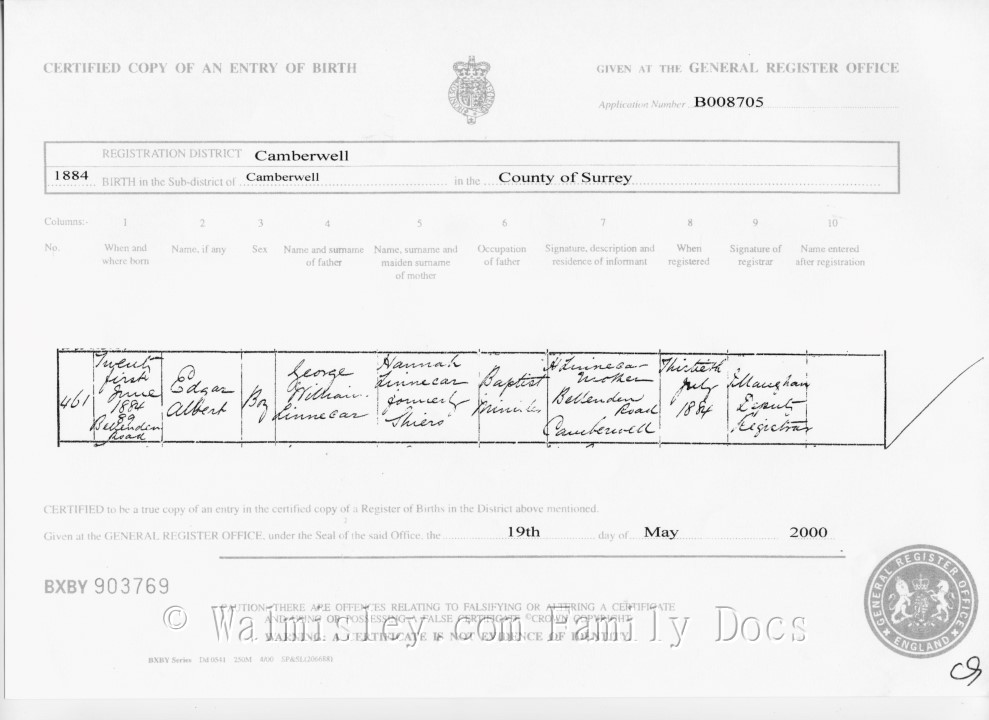 CERTIFIED COPY OF AN ENTRY OF BIRTH
GIVEN AT THE GENERAL REGISTER OFFICE
Application Number B008705
REGISTRATION DISTRICT Camberwell
1884 BIRTH in the Sub-district of Camberwell in the County of Surrey
Columns:- 1 2 3 4 5 6 7 8 9 10
No. When and where born Name, if any Sex Name and surname of father Name, surname and maiden surname of mother Occupation of father Signature, description and residence of informant When registered Signature of registrar Name entered after registration
461
Twenty
first
June
1884
89
Bellenden
Road
Edgar
Albert
Boy
George
William
Linnecar
Hannah
Linnecar
formerly
Shiers
Baptist
Minister
H Linnecar
Mother
Bellenden
Road
Camberwell
Thirtieth
July
1884
Maughan
Deputy
Registrar
CERTIFIED to be a true copy of an entry in the certified copy of a Register of Births in the District above mentioned.
Given at the GENERAL REGISTER OFFICE, under the Seal of the said Office, the 19th day of May 2000
BXBY 903769
CAUTION: THERE ARE OFFENCES RELATING TO FALSIFYING OR ALTERING A CERTIFICATE
AND USING OR POSSESSING A FALSE CERTIFICATE ©CROWN COPYRIGHT
WARNING: A CERTIFICATE IS NOT EVIDENCE OF IDENTITY.
© Walmsley from Family Docs
BXBY Series
250M 4/00
GENERAL REGISTER OFFICE
ENGLAND